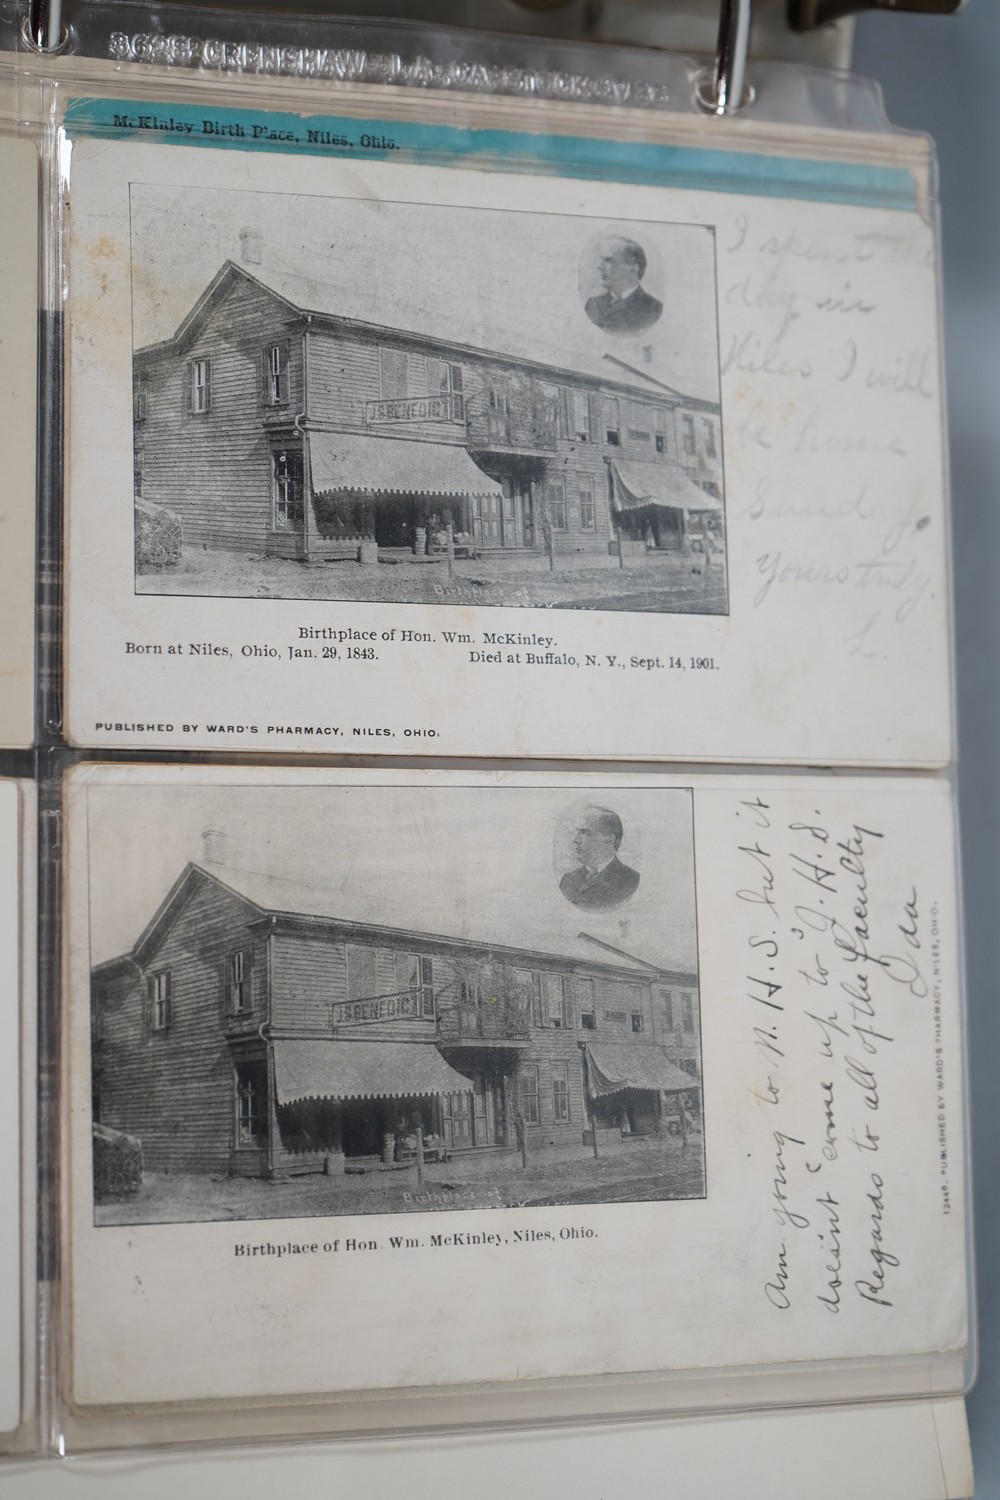 McKinley Birth Place, Niles, Ohio.
I spent the
day in
Niles I will
be home
Sunday.
Yours truly.
L.
J.S. BENEDICT
Birthplace of
Birthplace of Hon. Wm. McKinley.
Born at Niles, Ohio, Jan. 29, 1843.
Died at Buffalo, N. Y., Sept. 14, 1901.
PUBLISHED BY WARD'S PHARMACY, NILES, OHIO.
J.S. BENEDICT
Birthplace of
Birthplace of Hon. Wm. McKinley, Niles, Ohio.
Am going to N. H. S. but it
doesn't "come up to" J. H. S.
Regards to all of the faculty
Ida
12448. PUBLISHED BY WARD'S PHARMACY, NILES, OHIO.